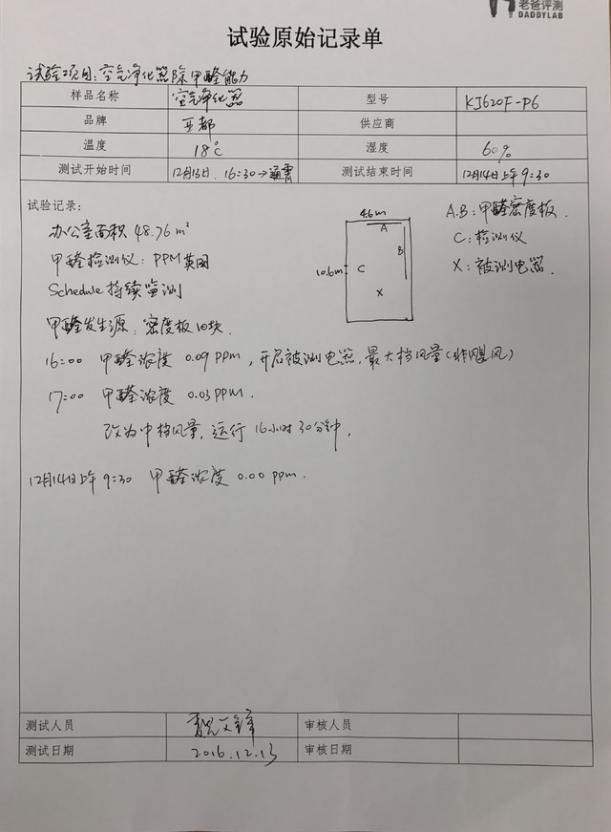 老爸评测
DADDYLAB
试验原始记录单
试验项目:空气净化器除甲醛能力
样品名称 空气净化器 型号 KJ620F-P6
品牌 亚都 供应商
温度 18℃ 湿度 60%
测试开始时间 12月13日. 16:30→通宵 测试结束时间 12月14日上午9:30
试验记录:
办公室面积 48.76 m²
甲醛检测仪: PPM 英国
Schedule 持续监测
甲醛发生源: 密度板 块.
4.6m
A
B
10.6m
C
X
A.B:甲醛密度板.
C:检测仪
X:被测电器.
16:00 甲醛浓度 0.09 PPM, 开启被测电器, 最大档风量(非飓风)
17:00 甲醛浓度 0.03 PPM.
改为中档风量, 运行 16小时30分钟.
12月14日上午 9:30 甲醛浓度 0.00 ppm.
测试人员 魏文锋 审核人员
测试日期 2016.12.13 审核日期